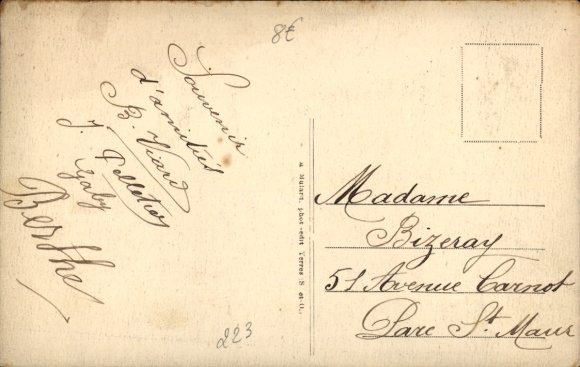 8€
Souvenir
d'amitiés
B. Viard
J. Pelletier
Gaby
Berthe
223
Mulard, phot-edit Yerres S et O.
Madame
Bizeray
51 Avenue Carnot
Parc St Maur